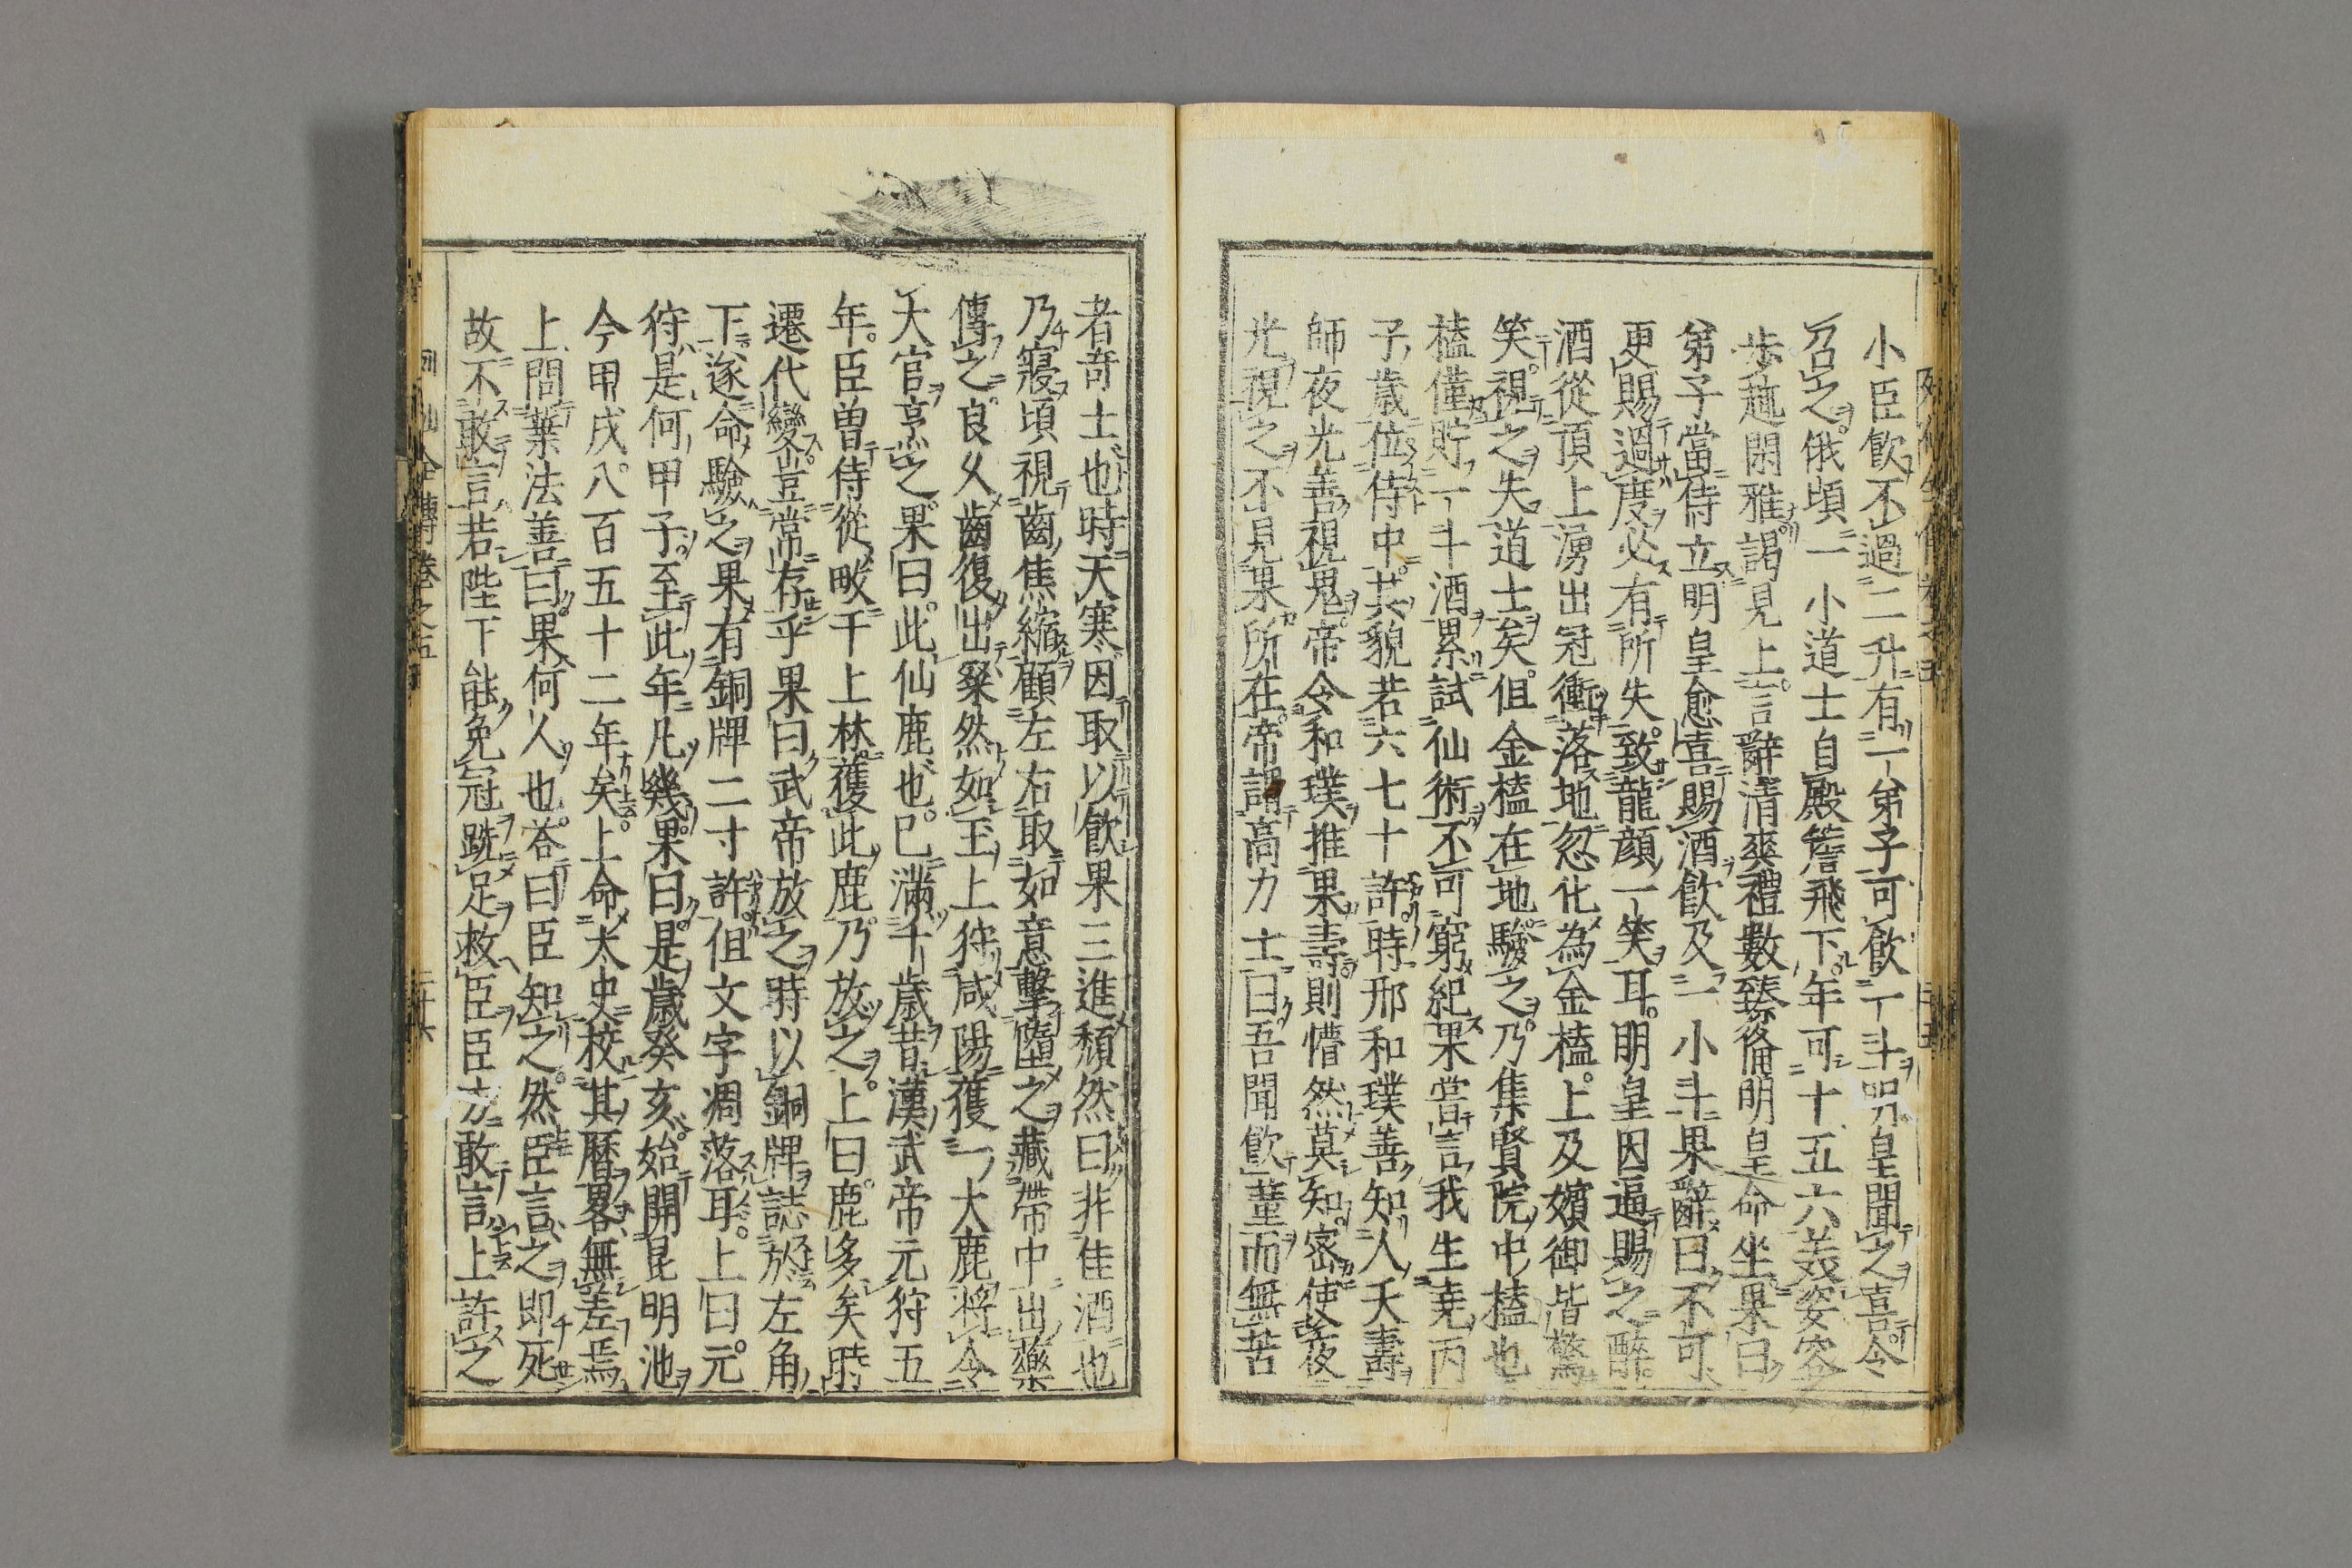 小臣飲不過二升有一弟子可飲一斗明皇聞之喜令
召之俄頃一小道士自殿簷飛下年可十五六美姿容
歩趍閑雅謁見上言辭清爽禮數臻備明皇命坐果曰
弟子當侍立明皇愈喜賜酒飲及一小斗果辭曰不可
更賜過度必有所失致龍顔一笑耳明皇因逼賜之醉
酒從頂上湧出冠衝落地忽化為金榼上及嬪御皆驚
笑視之失道士矣但金榼在地驗之乃集賢院中榼也
榼僅貯一斗酒累試仙術不可窮紀果嘗言我生堯丙
子歳位侍中其貌若六七十許時邢和璞善知人夭壽
師夜光善視鬼帝令和璞推果壽則懵然莫知密使夜
光視之不見果所在帝謂高力士曰吾聞飲菫而無苦
者奇士也時天寒因取以飲果三進頽然曰非佳酒也
乃寢頃視齒焦縮顧左右取如意擊墮之藏帶中出藥
傅之良乆齒復出粲然如玉上狩咸陽獲一大鹿將令
大官烹之果曰此仙鹿也已滿千歳昔漢武帝元狩五
年臣曽侍從畋于上林獲此鹿乃放之上曰鹿多矣時
遷代變豈常存乎果曰武帝放之時以銅牌誌於左角
下遂命驗之果有銅牌二寸許但文字凋落耳上曰元
狩是何甲子至此年凡幾果曰是歳癸亥始開昆明池
今甲戌八百五十二年矣上命太史校其曆畧無差焉
上問葉法善曰果何人也荅曰臣知之然臣言之即死
故不敢言若陛下能免冠跣足救臣臣方敢言上許之
列仙全傳卷之五
二十六